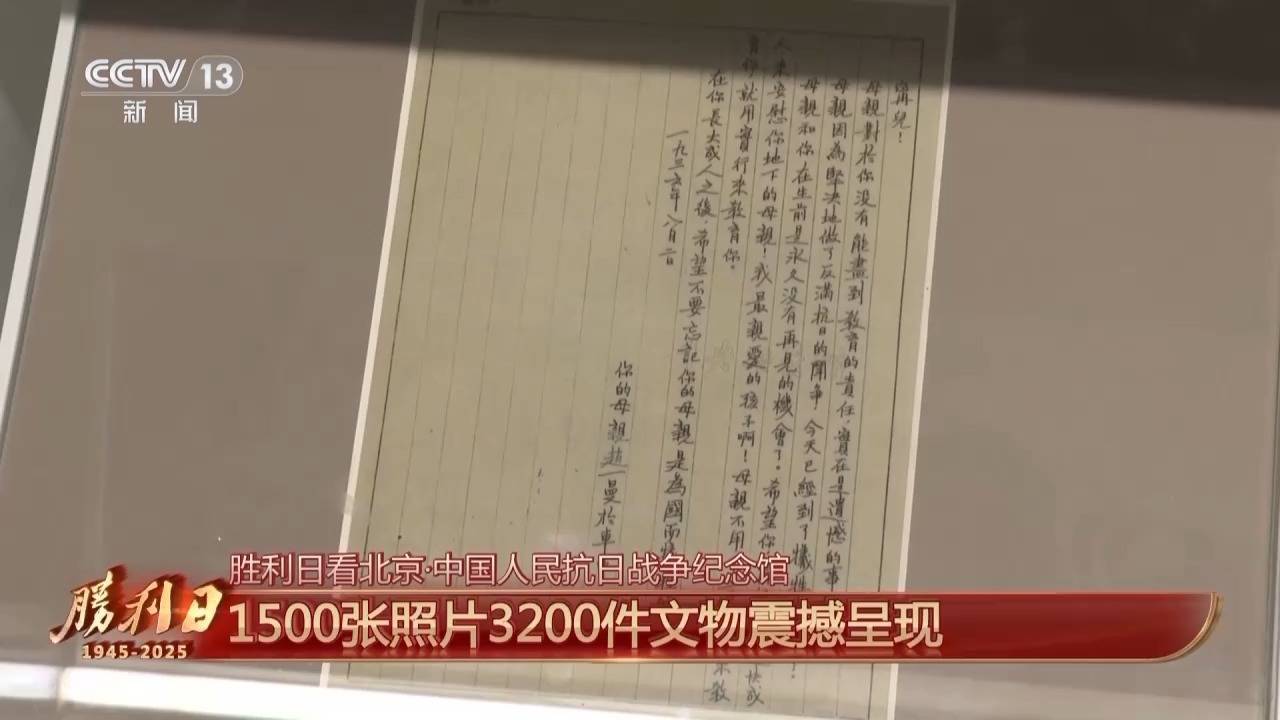 CCTV 13
新闻
寧兒！
母親對於你没有能盡到教育的責任，實在是遺憾的事
母親因為堅決地做了反滿抗日的鬥争，今天已經到了犧牲
母親和你在生前是永久没有再見的機會了。希望你
人来安慰你地下的母親！我最親愛的孩子啊！母親不用
就用實行来教育你。
在你長大成人之後，希望不要忘記你的母親是為國而
一九三六年八月二日
你的母親趙一曼於車
胜利日看北京·中国人民抗日战争纪念馆
勝利日
1945-2025
1500张照片3200件文物震撼呈现